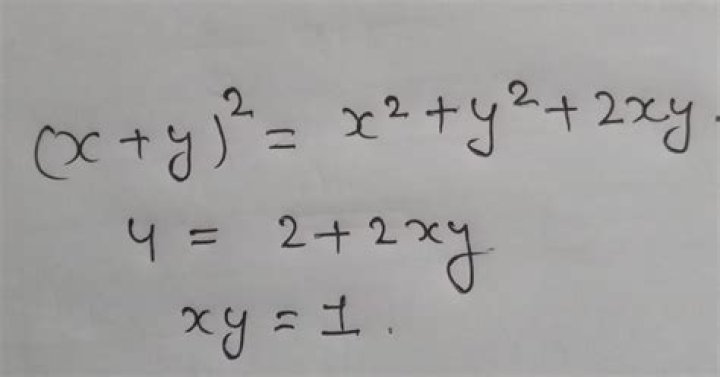 (x+y)² = x²+y²+2xy.
4 = 2+2xy
xy = 1.